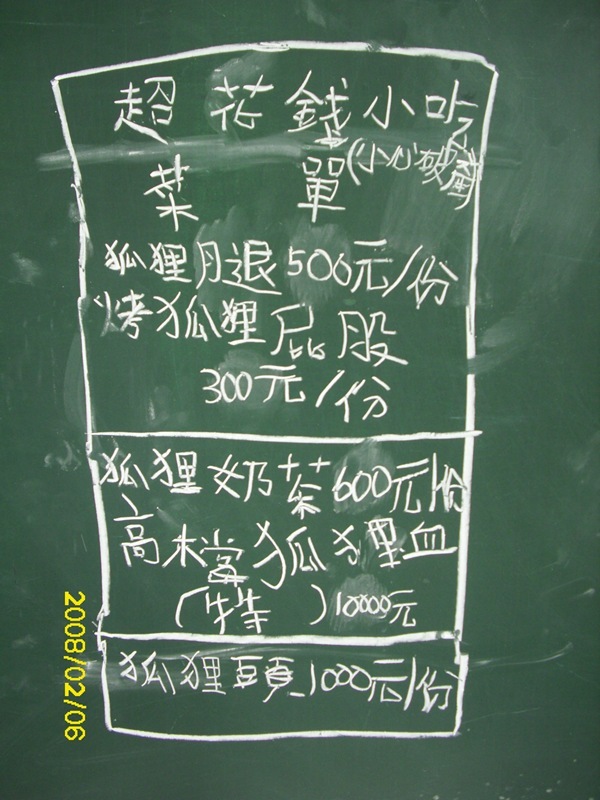 超花錢小吃
(小心破產)
菜單
狐狸月退500元/份
烤狐狸屁股
300元/份
狐狸奶茶600元/份
高木當狐狸血
(特)10000元
狐狸頭1000元/份
2008/02/06